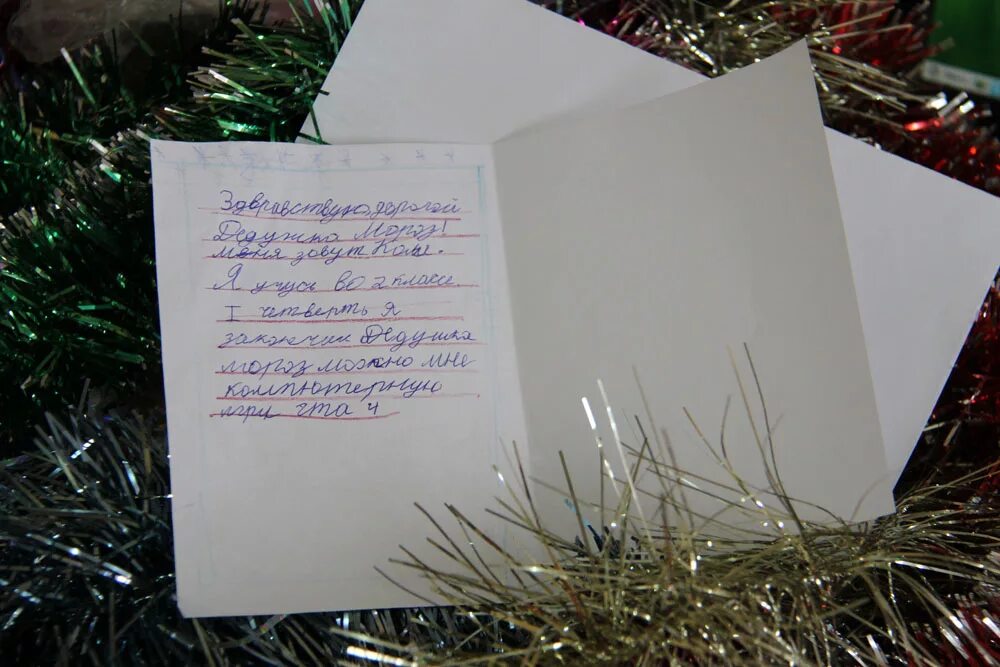 Здвравствую,дорогой
Дедушка Мороз!
меня зовут Коля.
Я учусь во 2 классе.
I четверть я
закончил Дедушка
мороз можно мне
компютерную
игру гта 4